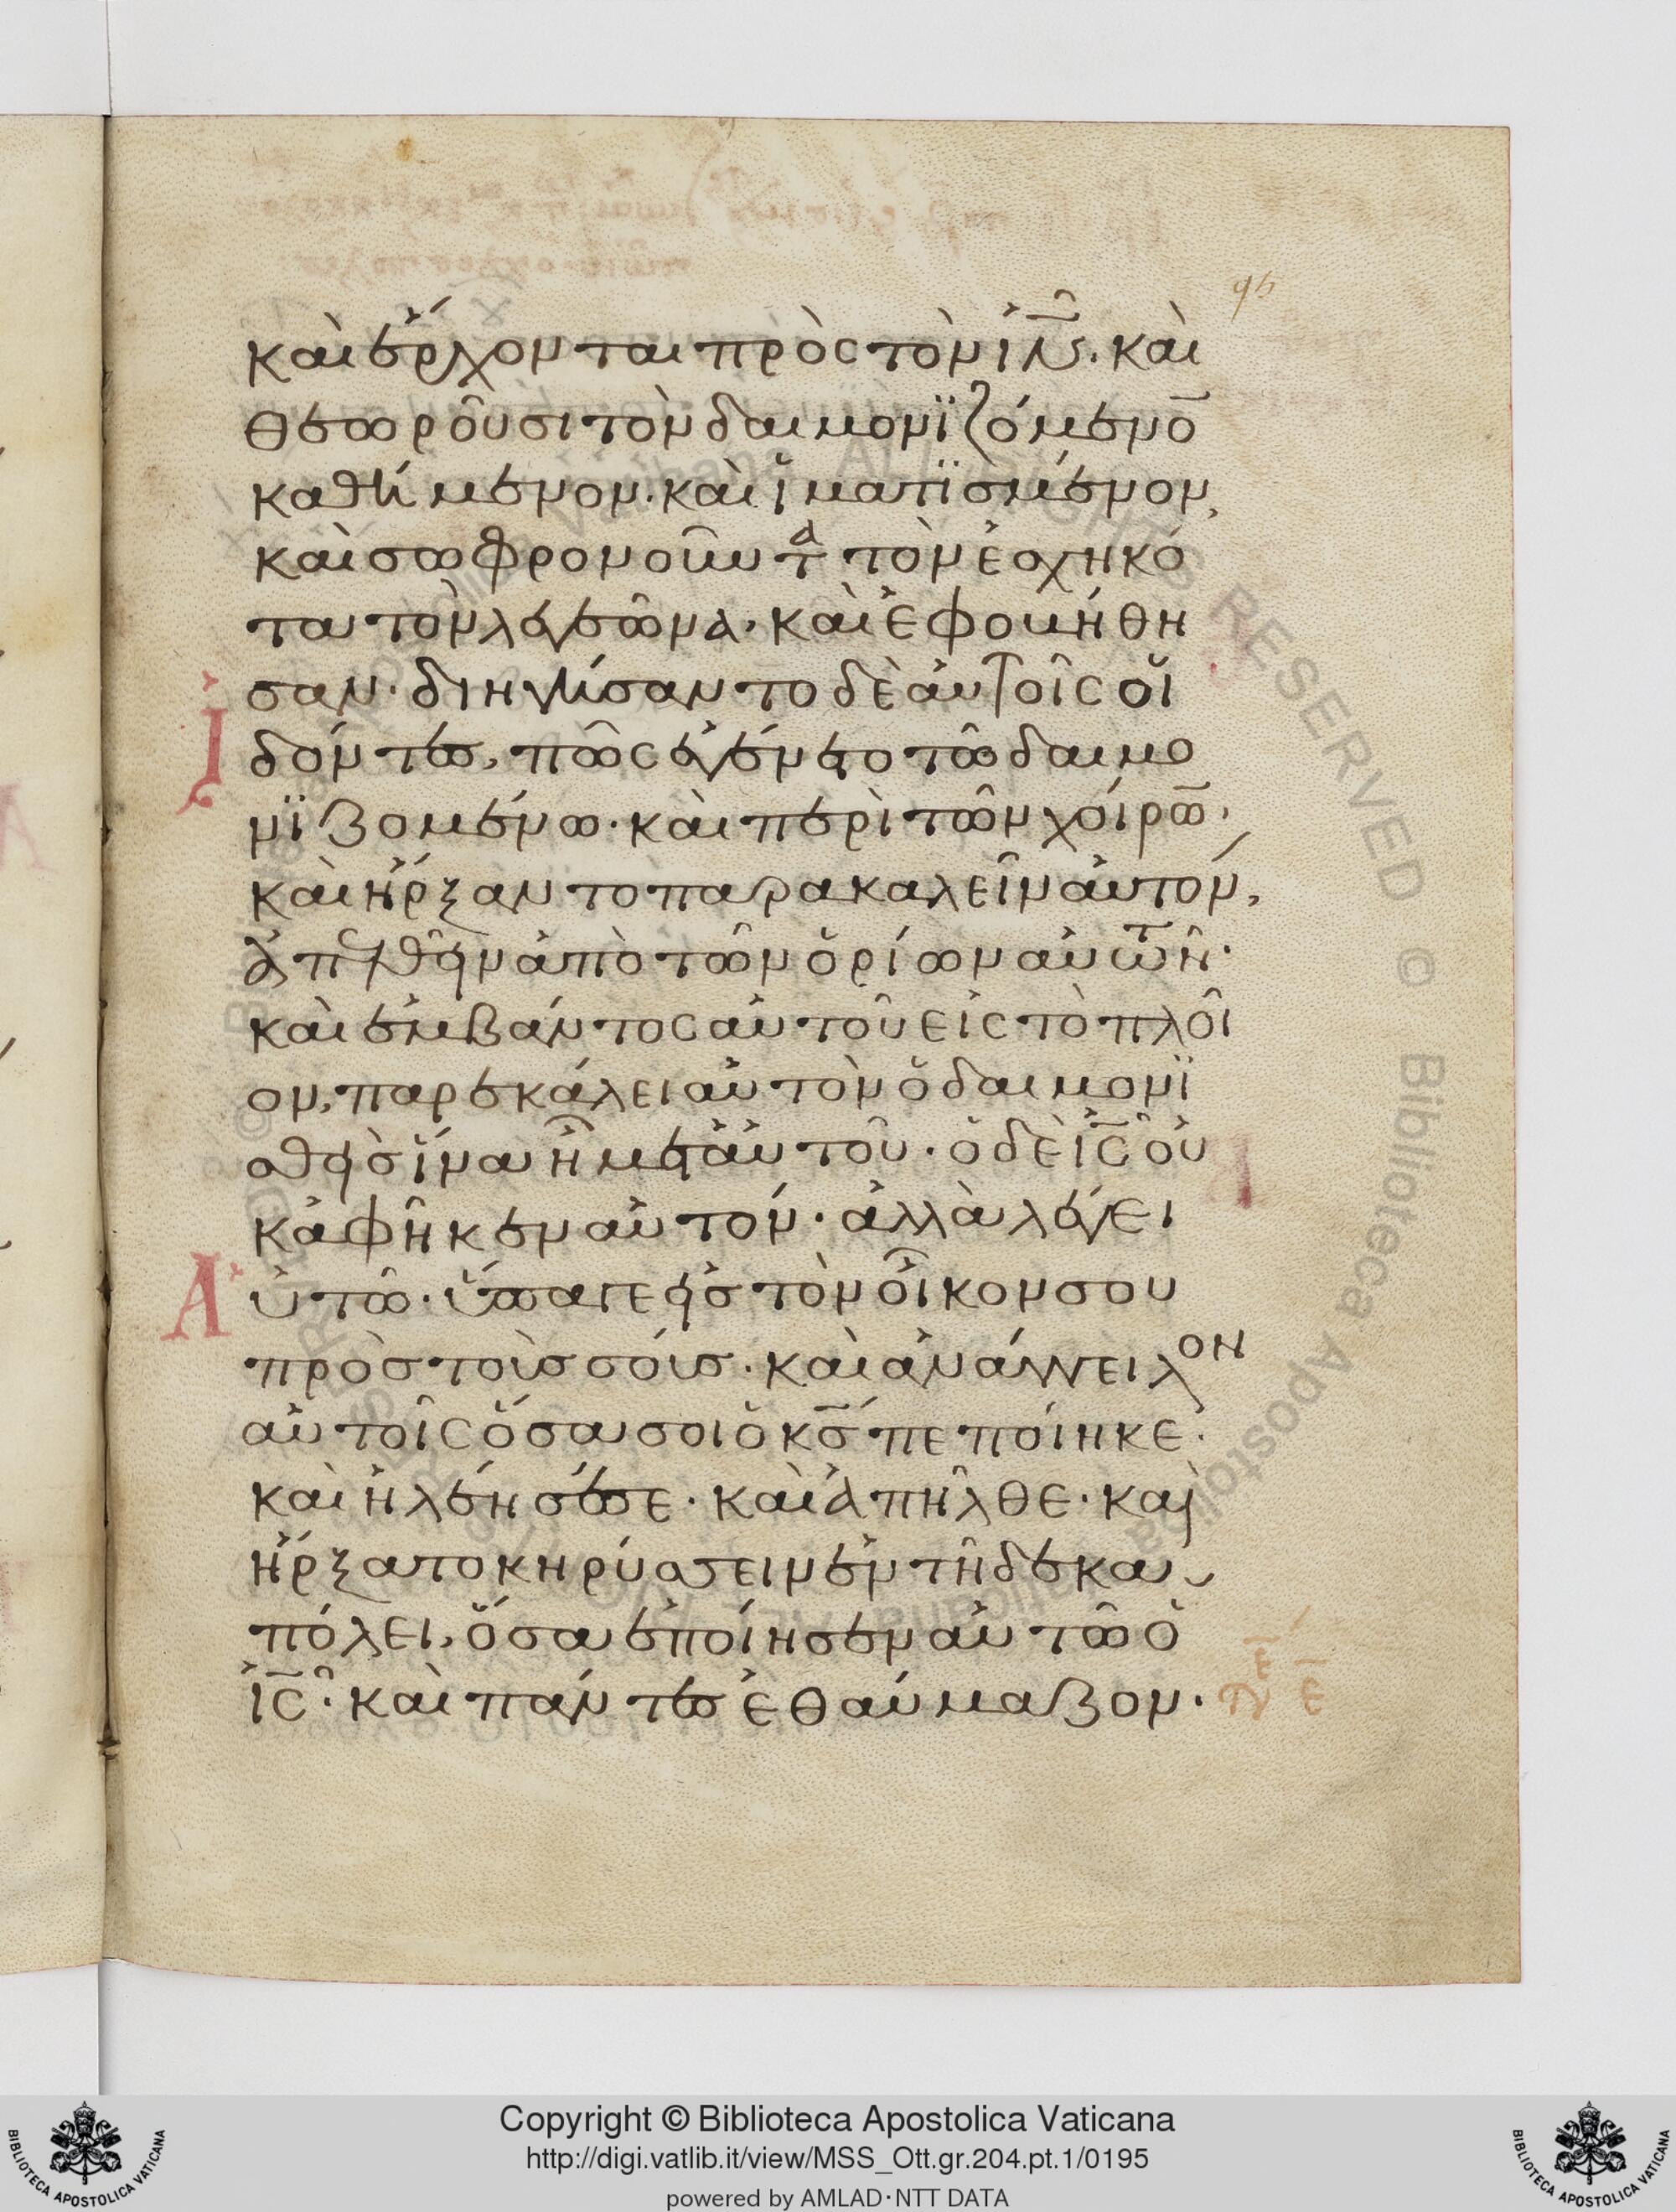 95
καὶ ἔρχονται πρὸς τὸν ἰ̅ν̅. καὶ
θεωροῦσι τὸν δαιμονϊζόμενο̅
καθήμενον. καὶ ἱματϊσμένον,
καὶ σωφρονοῦντα τὸν ἐσχηκό
τα τὸν λεγεῶνα. καὶ ἐφοβήθη
σαν. διηγήσαντο δὲ αὐτοῖς οἱ
Ἰδόντες, πῶς ἐγένετο τῶ δαιμο
νϊζομένω. καὶ περὶ τῶν χοίρω̅.
καὶ ἤρξαντο παρακαλεῖν αὐτόν,
ἀπελθεῖν ἀπὸ τῶν ὁρίων αὐτῶν.
καὶ ἐμβάντος αὐτοῦ εἰς τὸ πλοῖ
ον, παρεκάλει αὐτὸν ὁ δαιμονϊ
σθεὶς ἵνα ἦ μετ' αὐτοῦ. ὁ δὲ ἰ̅ς̅ οὐ
κ ἀφῆκεν αὐτόν. ἀλλὰ λέγει
Αὐτῶ. ὕπαγε εἰς τὸν οἶκον σου
πρὸς τοὺς σούς. καὶ ἀνάγγειλον
αὐτοῖς ὅσα σοι ὁ κ̅ς̅ πεποίηκε.
καὶ ἠλέησέ σε. καὶ ἀπῆλθε. καὶ
ἤρξατο κηρύσσειν ἐν τῆ δεκα
πόλει, ὅσα ἐποίησεν αὐτῶ ὁ
ἰ̅ς̅. καὶ πάντες ἐθαύμαζον.
Copyright © Biblioteca Apostolica Vaticana
http://digi.vatlib.it/view/MSS_Ott.gr.204.pt.1/0195
powered by AMLAD·NTT DATA
BIBLIOTECA APOSTOLICA VATICANA
BIBLIOTECA APOSTOLICA VATICANA